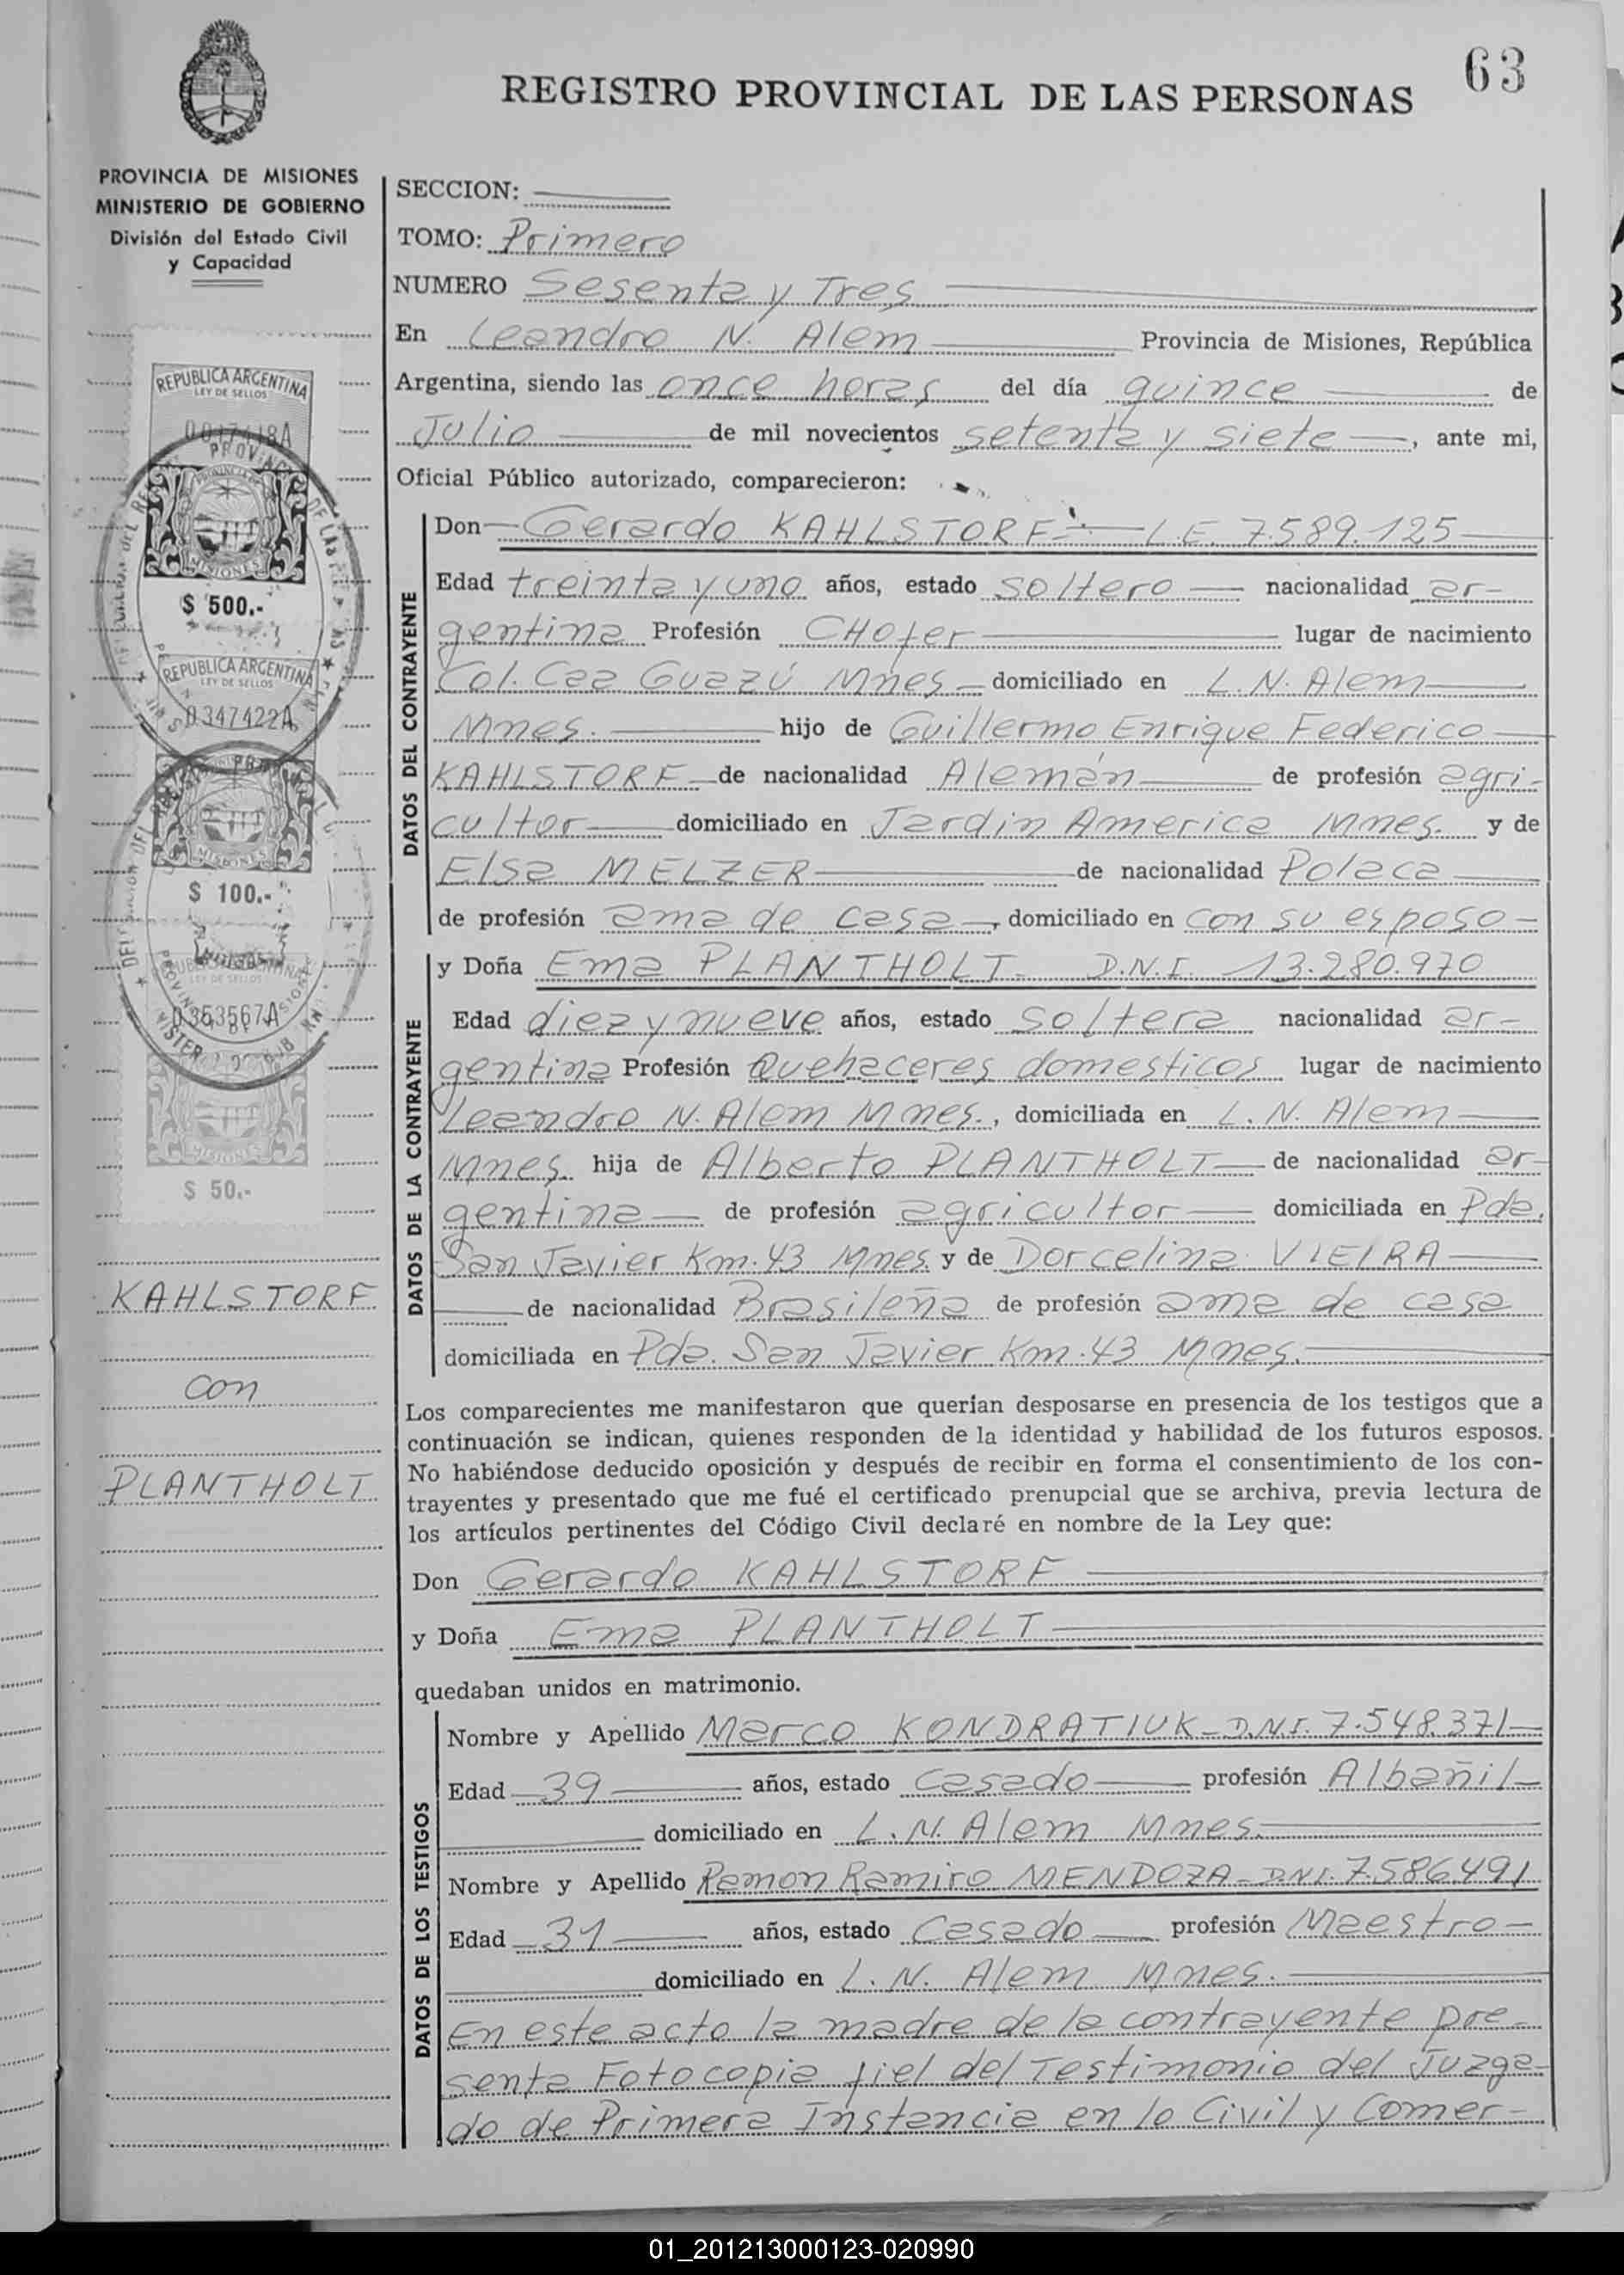 63
REGISTRO PROVINCIAL DE LAS PERSONAS
PROVINCIA DE MISIONES
MINISTERIO DE GOBIERNO
División del Estado Civil
y Capacidad
REPUBLICA ARGENTINA
LEY DE SELLOS
MISIONES
$ 500.-
REPUBLICA ARGENTINA
LEY DE SELLOS
0347422A
MISIONES
$ 100.-
LEY DE SELLOS
0353567A
MISIONES
$ 50.-
KAHLSTORF
con
PLANTHOLT
SECCION:
TOMO: Primero
NUMERO Sesenta y Tres
En Leandro N. Alem Provincia de Misiones, República
Argentina, siendo las once horas del día quince de
Julio de mil novecientos setenta y siete, ante mi,
Oficial Público autorizado, comparecieron:
DATOS DEL CONTRAYENTE
Don Gerardo KAHLSTORF L.E. 7.589.125
Edad treinta y uno años, estado soltero nacionalidad ar-
gentina Profesión CHofer lugar de nacimiento
Col. Caa Guazú Mnes domiciliado en L.N. Alem
Mnes. hijo de Guillermo Enrique Federico
KAHLSTORF de nacionalidad Alemán de profesión agri-
cultor domiciliado en Jardin America Mnes. y de
Elsa MELZER de nacionalidad Polaca
de profesión ama de casa, domiciliado en con su esposo
DATOS DE LA CONTRAYENTE
y Doña Ema PLANTHOLT D.N.I. 13.280.970
Edad diez y nueve años, estado soltera nacionalidad ar-
gentina Profesión Quehaceres domesticos lugar de nacimiento
Leandro N. Alem Mnes., domiciliada en L. N. Alem
Mnes. hija de Alberto PLANTHOLT de nacionalidad ar-
gentina de profesión agricultor domiciliada en Pda.
San Javier Km.43 Mnes y de Dorcelina VIEIRA
de nacionalidad Brasileña de profesión ama de casa
domiciliada en Pda. San Javier Km.43 Mnes.
Los comparecientes me manifestaron que querían desposarse en presencia de los testigos que a
continuación se indican, quienes responden de la identidad y habilidad de los futuros esposos.
No habiéndose deducido oposición y después de recibir en forma el consentimiento de los con-
trayentes y presentado que me fué el certificado prenupcial que se archiva, previa lectura de
los artículos pertinentes del Código Civil declaré en nombre de la Ley que:
Don Gerardo KAHLSTORF
y Doña Ema PLANTHOLT
quedaban unidos en matrimonio.
DATOS DE LOS TESTIGOS
Nombre y Apellido Marco KONDRATIUK D.N.I. 7.548.371
Edad 39 años, estado casado profesión Albañil
domiciliado en L.N. Alem Mnes.
Nombre y Apellido Ramon Ramiro MENDOZA D.N.I. 7.586.491
Edad 31 años, estado Casado profesión Maestro
domiciliado en L. N. Alem Mnes.
En este acto la madre de la contrayente pre-
senta Fotocopia fiel del Testimonio del Juzga-
do de Primera Instancia en lo Civil y Comer-
01_201213000123-020990